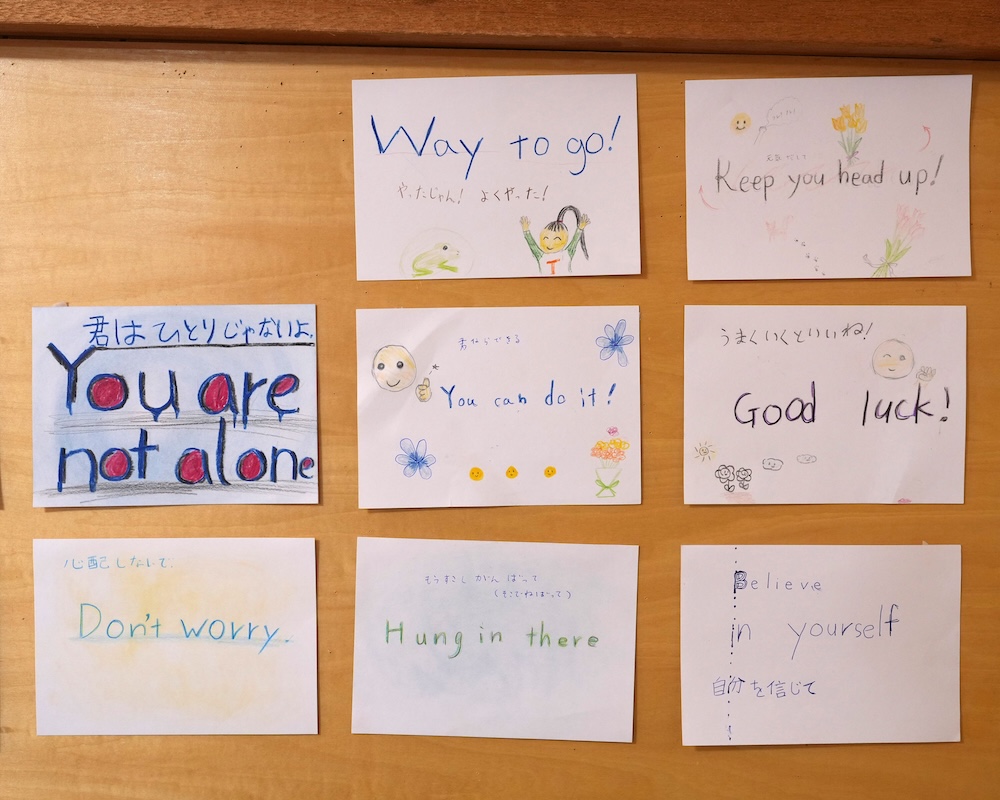 Way to go!
やったじゃん! よくやった!
T
元気だして
Keep you head up!
君はひとりじゃないよ.
You are
not alone
君ならできる
You can do it!
うまくいくといいね!
Good luck!
心配しないで
Don't worry.
もうすこしがんばって
Hung in there
Believe
in yourself
自分を信じて